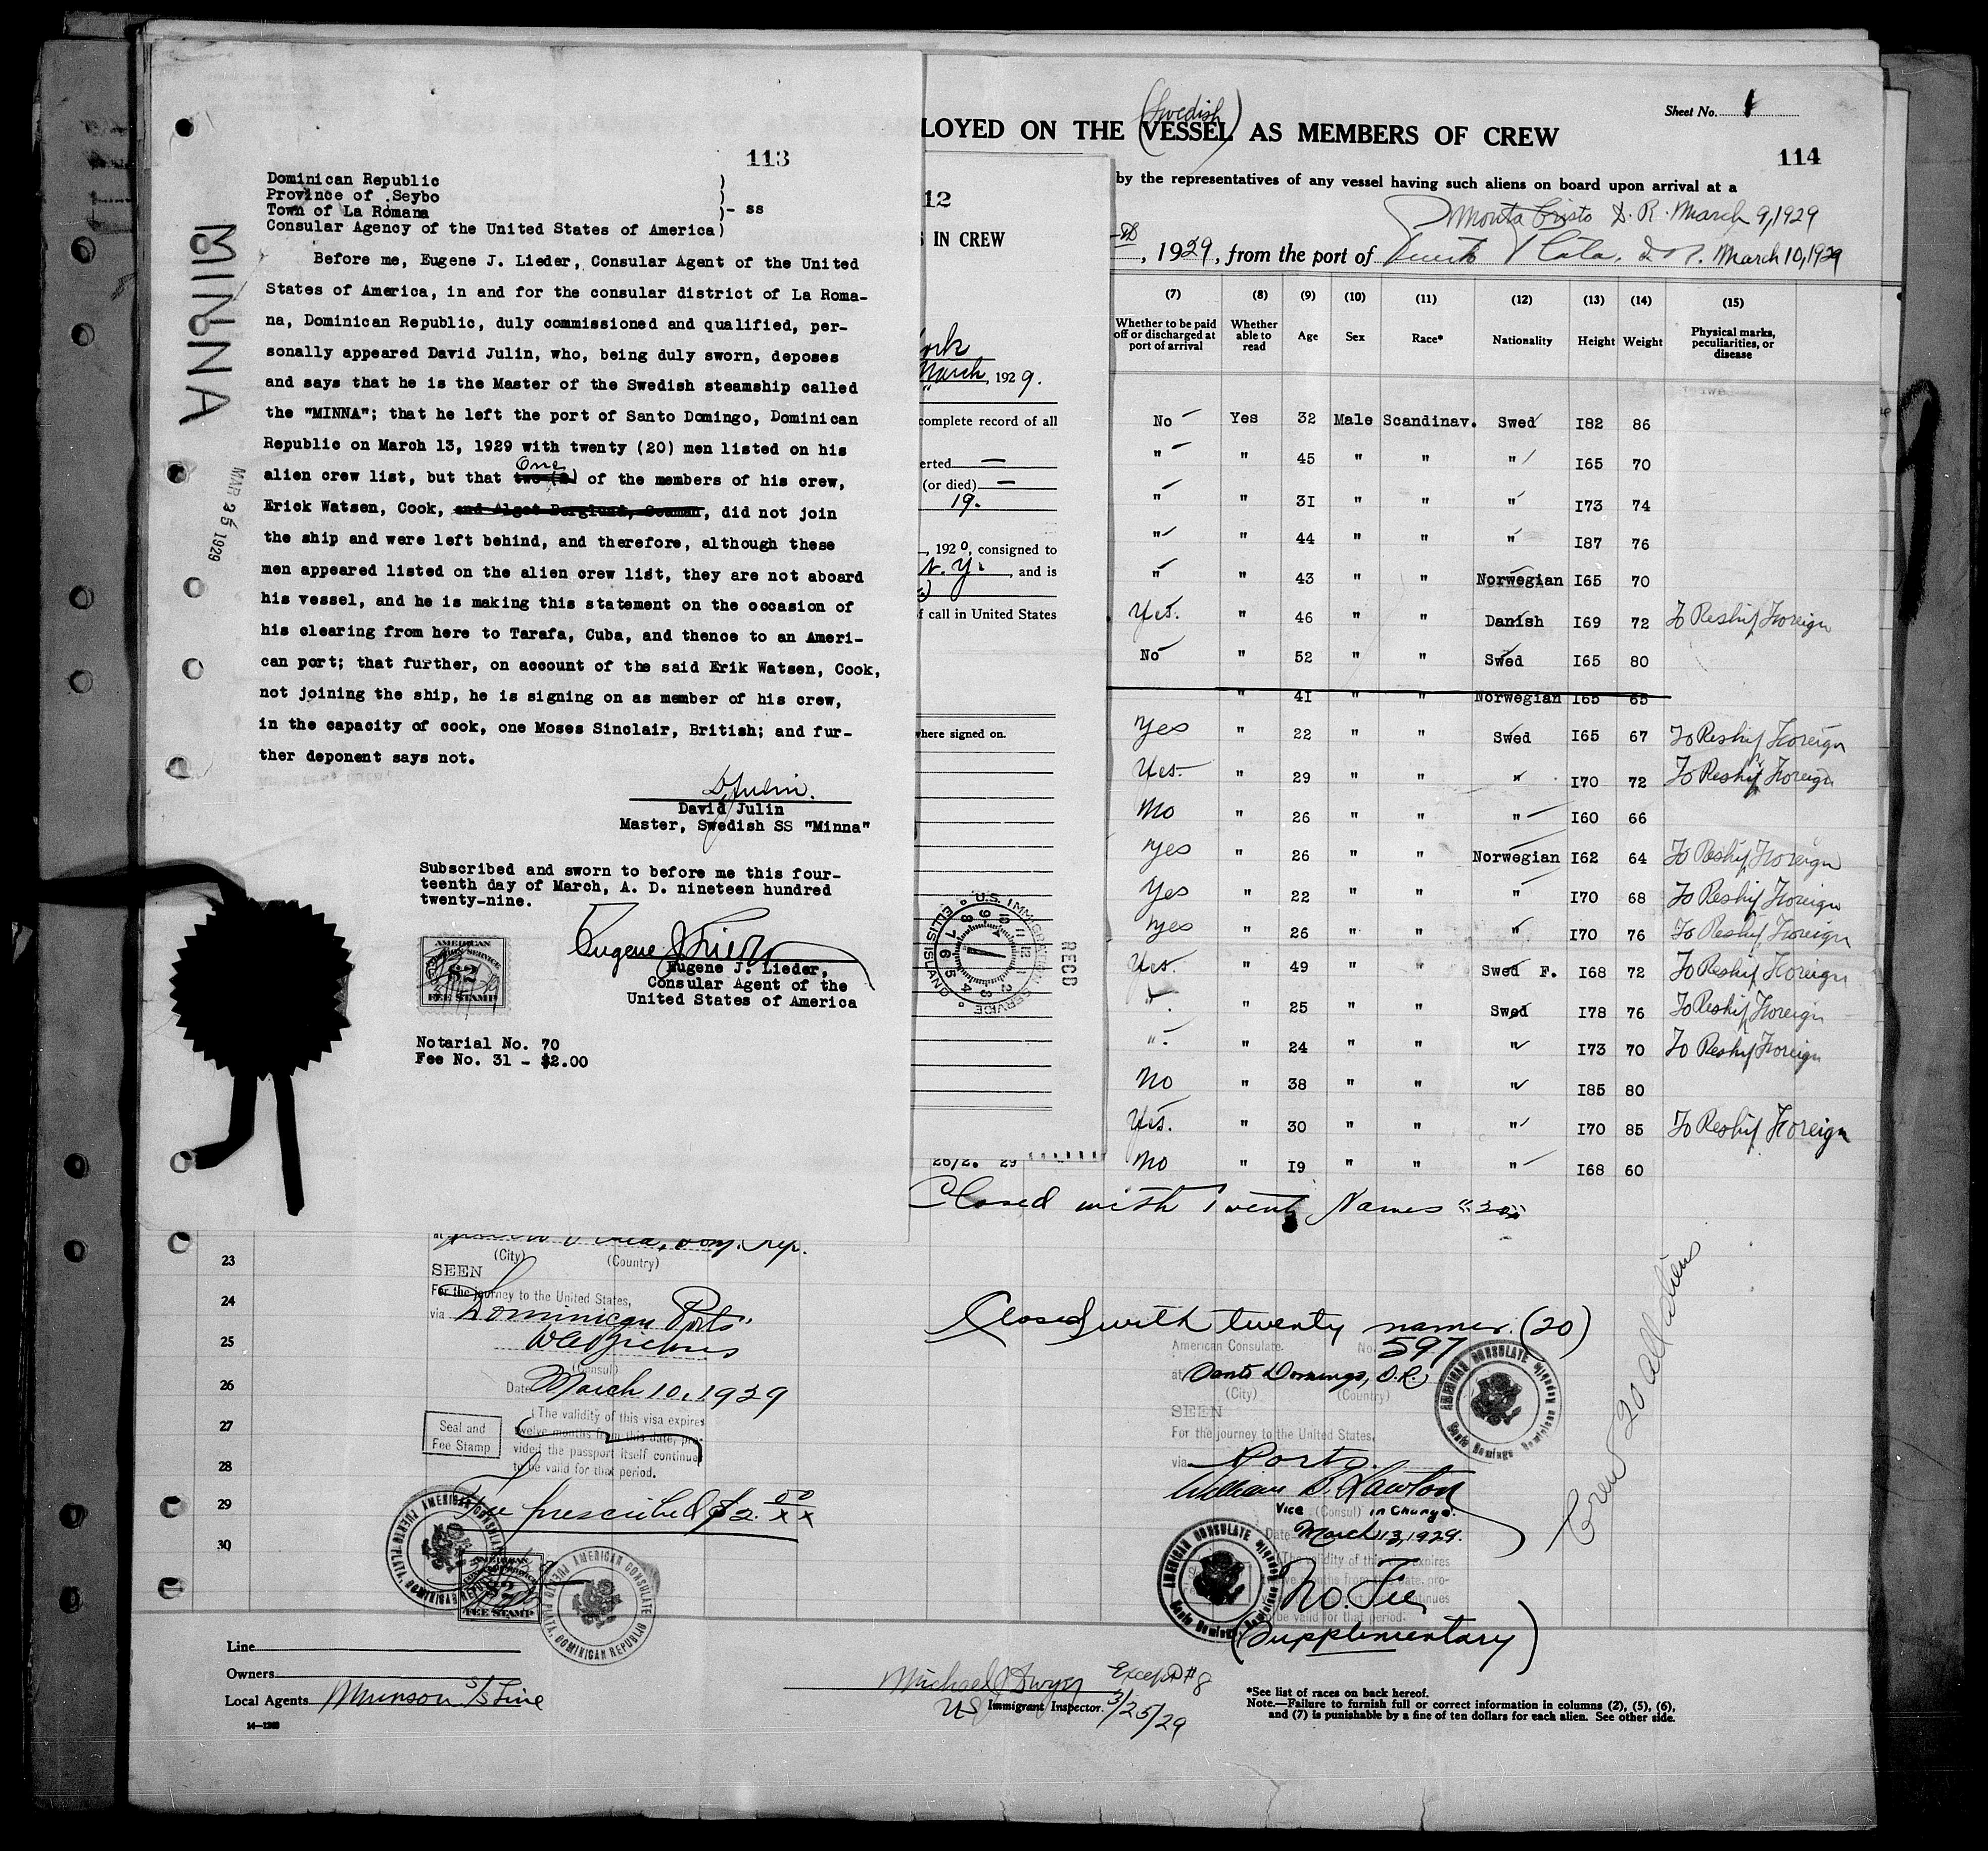 113
Dominican Republic )
Province of Seybo )
Town of La Romana )- ss
Consular Agency of the United States of America)
MINNA
MAR 25 1929
Before me, Eugene J. Lieder, Consular Agent of the United
States of America, in and for the consular district of La Roma-
na, Dominican Republic, duly commissioned and qualified, per-
sonally appeared David Julin, who, being duly sworn, deposes
and says that he is the Master of the Swedish steamship called
the "MINNA"; that he left the port of Santo Domingo, Dominican
Republic on March 13, 1929 with twenty (20) men listed on his
One
alien crew list, but that two (2) of the members of his crew,
Erick Watsen, Cook, and Algot Berglund, Seaman, did not join
the ship and were left behind, and therefore, although these
men appeared listed on the alien crew list, they are not aboard
his vessel, and he is making this statement on the occasion of
his clearing from here to Tarafa, Cuba, and thence to an Ameri-
can port; that further, on account of the said Erik Watsen, Cook,
not joining the ship, he is signing on as member of his crew,
in the capacity of cook, one Moses Sinclair, British; and fur-
ther deponent says not.
D Julin.
David Julin
Master, Swedish SS "Minna"
Subscribed and sworn to before me this four-
teenth day of March, A. D. nineteen hundred
twenty-nine.
Eugene J Lieder
Eugene J. Lieder,
Consular Agent of the
United States of America
AMERICAN
$2
FEE STAMP
Notarial No. 70
Fee No. 31 - $2.00
12
IN CREW
ork
March, 1929.
complete record of all
erted —
(or died) —
19.
, 1920, consigned to
N. Y. , and is
f call in United States
where signed on.
U.S. IMMIGRATION SERVICE
ELLIS ISLAND
RECD
26/2. 29
Sheet No. 1
(Swedish)
LOYED ON THE VESSEL AS MEMBERS OF CREW
114
by the representatives of any vessel having such aliens on board upon arrival at a
Monta Cristo D. R. March 9, 1929
, 1929, from the port of Puerto Plata, D. R. March 10, 1929
(7) (8) (9) (10) (11) (12) (13) (14) (15)
Whether to be paid off or discharged at port of arrival Whether able to read Age Sex Race* Nationality Height Weight Physical marks, peculiarities, or disease
No Yes 32 Male Scandinav. Swed I82 86
" " 45 " " " I65 70
" " 3I " " " I73 74
" " 44 " " " I87 76
" " 43 " " Norwegian I65 70
Yes. " 46 " " Danish I69 72 To Reship Foreign
No " 52 " " Swed I65 80
" 4I " " Norwegian I65 65
Yes " 22 " " Swed I65 67 To Reship Foreign
Yes. " 29 " " " I70 72 To Reship Foreign
No " 26 " " " I60 66
Yes " 26 " " Norwegian I62 64 To Reship Foreign
Yes " 22 " " " I70 68 To Reship Foreign
Yes " 26 " " " I70 76 To Reship Foreign
Yes. " 49 " " Swed F. I68 72 To Reship Foreign
" " 25 " " Swed I78 76 To Reship Foreign
" " 24 " " " I73 70 To Reship Foreign
No " 38 " " " I85 80
Yes. " 30 " " " I70 85 To Reship Foreign
No " I9 " " " I68 60
Closed with Twenty Names "20"
23
24
25
26
27
28
29
30
(City) (Country)
SEEN
For the journey to the United States,
via Dominican Ports.
(Consul)
Date March 10, 1929
(The validity of this visa expires
twelve months from this date, pro-
vided the passport itself continues
to be valid for that period.
Seal and
Fee Stamp
Fee prescribed $2. 00/xx
AMERICAN CONSULATE
PUERTO PLATA, DOMINICAN REPUBLIC
AMERICAN
$2
FEE STAMP
AMERICAN CONSULATE
PUERTO PLATA, DOMINICAN REPUBLIC
Closed with twenty names. (20)
American Consulate. No. 597
at Santo Domingo, D.R.
(City) (Country)
SEEN
For the journey to the United States,
via Ports.
William B. Lawton
Vice (Consul) in Charge.
Date March 13, 1929.
(The validity of this visa expires
twelve months from this date, pro-
vided the passport itself continues
to be valid for that period.
No Fee
(Supplimentary)
AMERICAN CONSULATE
Santo Domingo, Dominican Republic
AMERICAN CONSULATE
Santo Domingo, Dominican Republic
Crew 20 all aliens
Line
Owners
Local Agents Munson S/S Line
14—1240
Michael J Dwyer Except #8
US Immigrant Inspector. 3/25/29
*See list of races on back hereof.
Note.—Failure to furnish full or correct information in columns (2), (5), (6),
and (7) is punishable by a fine of ten dollars for each alien. See other side.